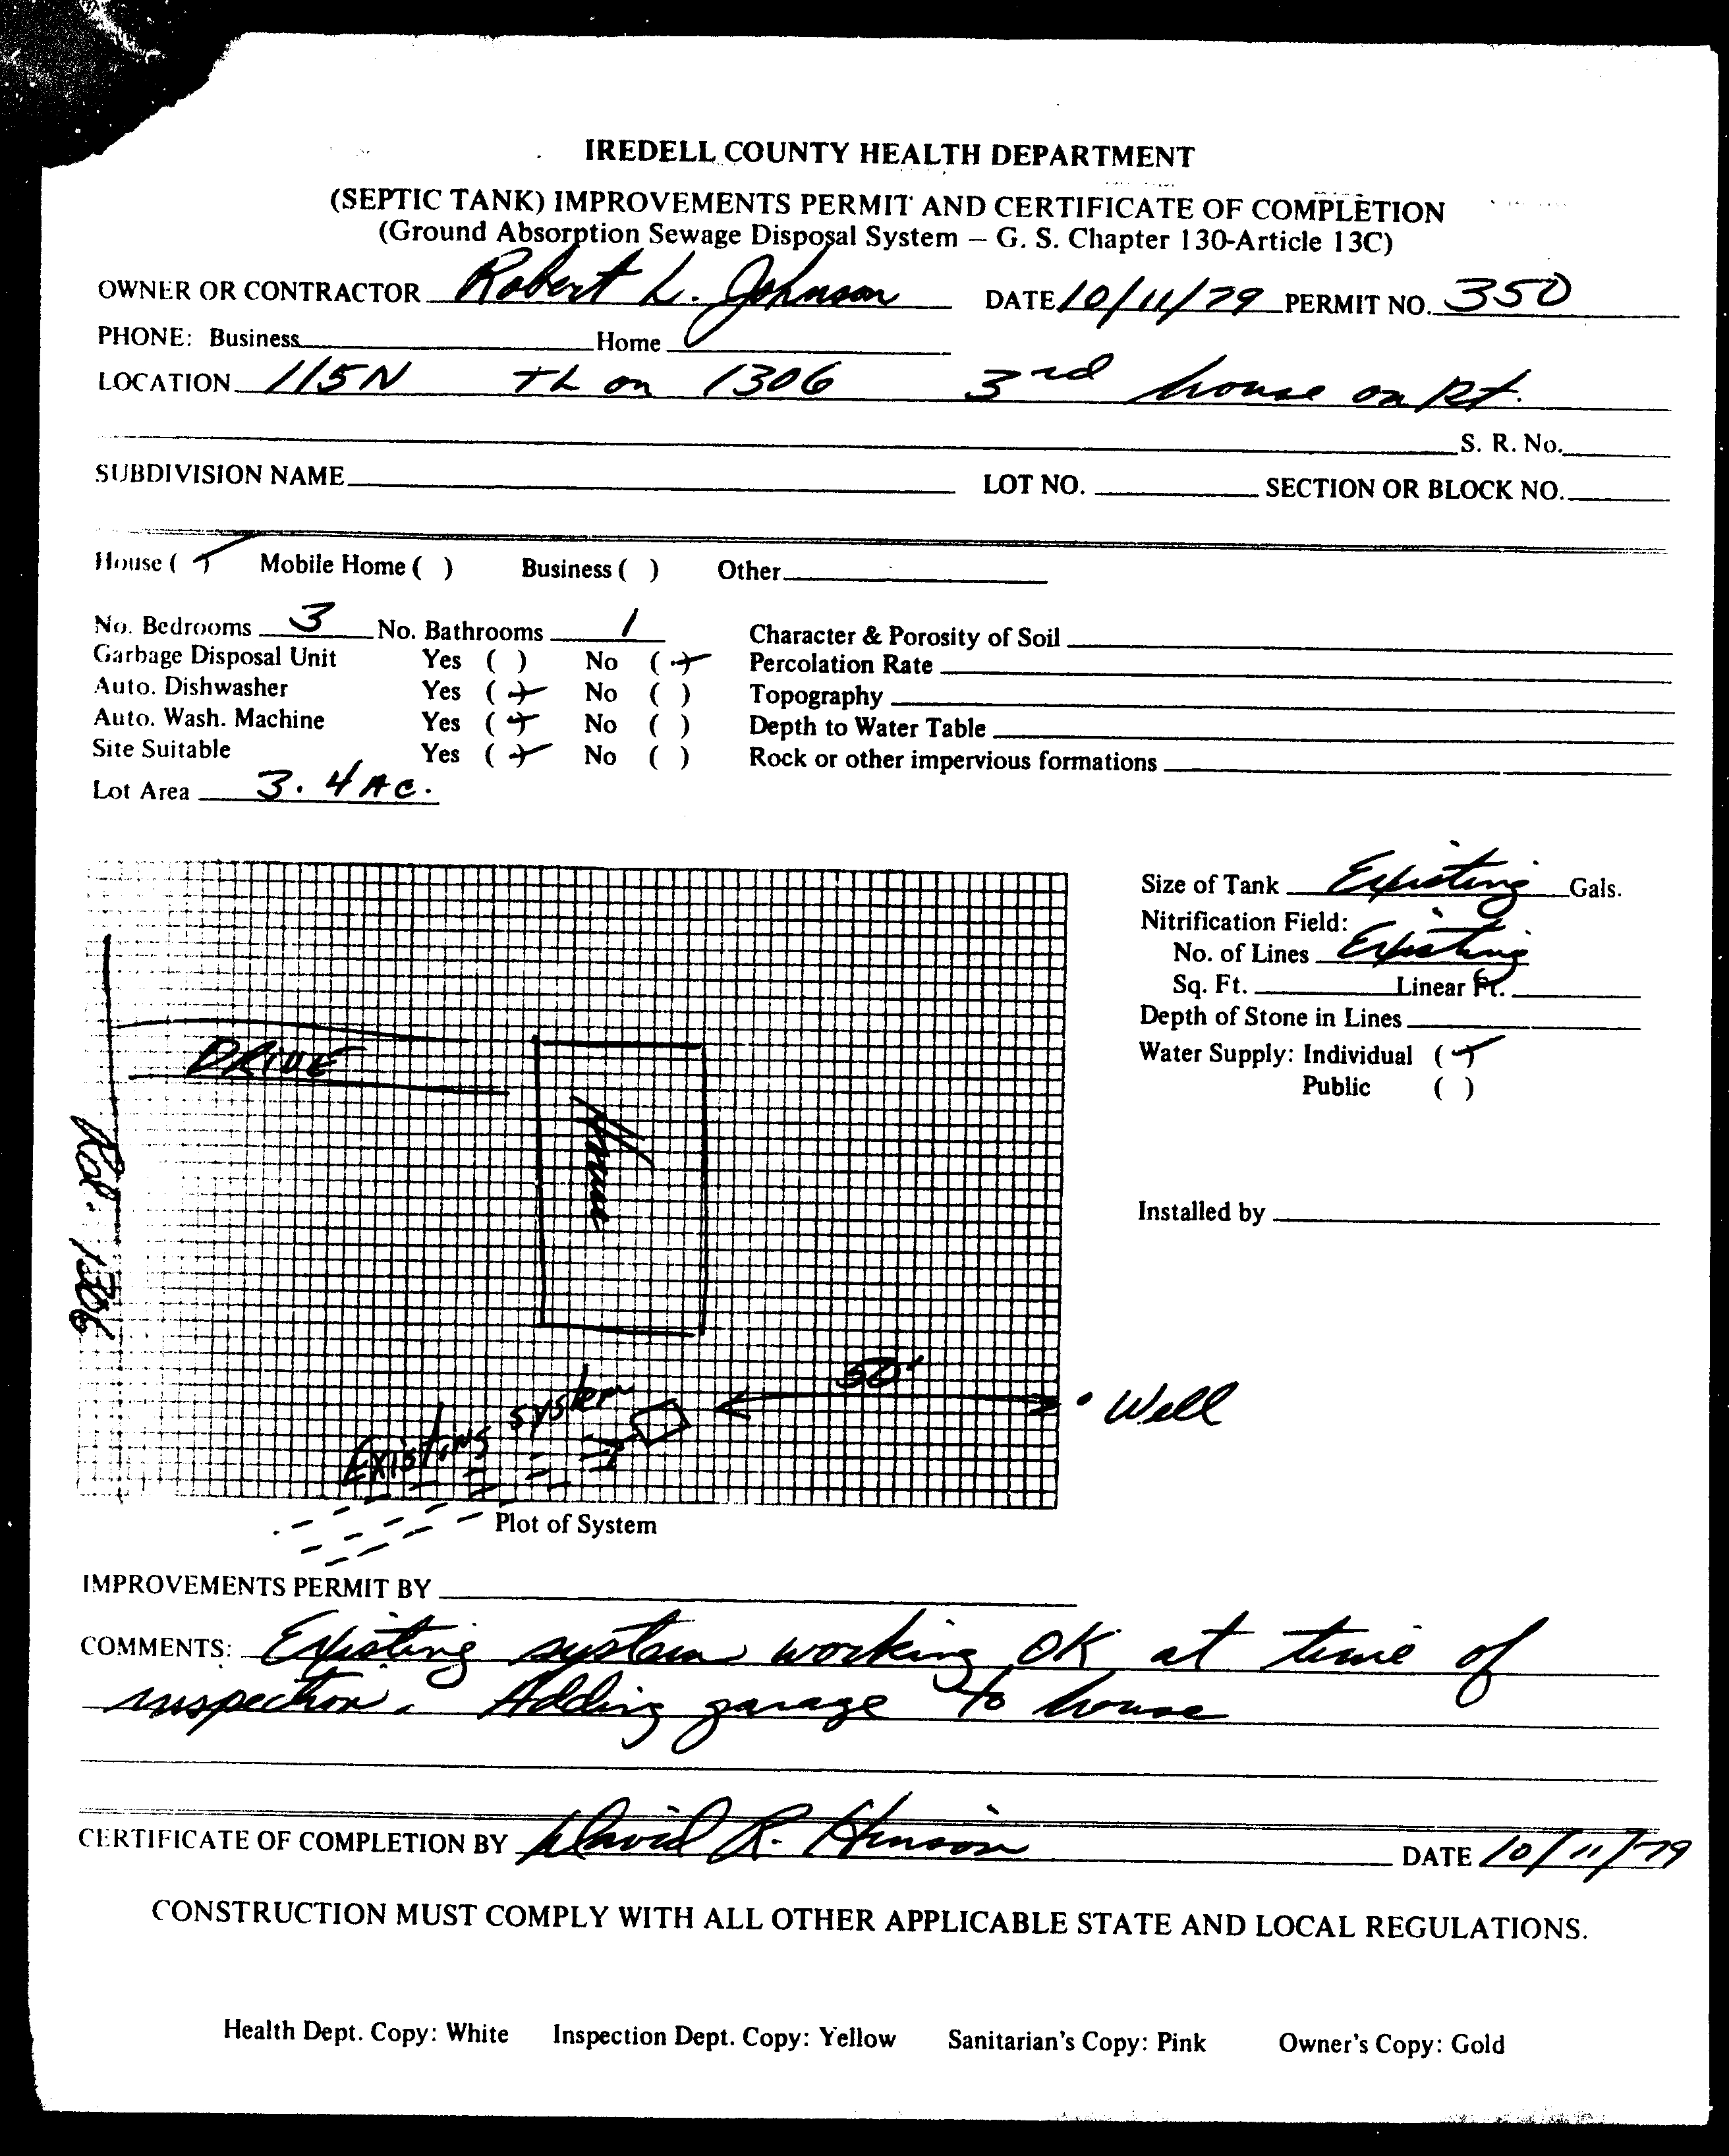 IREDELL COUNTY HEALTH DEPARTMENT
(SEPTIC TANK) IMPROVEMENTS PERMIT AND CERTIFICATE OF COMPLETION
(Ground Absorption Sewage Disposal System – G. S. Chapter 130-Article 13C)
OWNER OR CONTRACTOR Robert L. Johnson DATE 10/11/79 PERMIT NO. 350
PHONE: Business Home
LOCATION 115N TL on 1306 3rd house on Rt.
S. R. No.
SUBDIVISION NAME LOT NO. SECTION OR BLOCK NO.
House (✓) Mobile Home ( ) Business ( ) Other
No. Bedrooms 3 No. Bathrooms 1 Character & Porosity of Soil
Garbage Disposal Unit Yes ( ) No (✓) Percolation Rate
Auto. Dishwasher Yes (✓) No ( ) Topography
Auto. Wash. Machine Yes (✓) No ( ) Depth to Water Table
Site Suitable Yes (✓) No ( ) Rock or other impervious formations
Lot Area 3.4 AC.
Size of Tank Existing Gals.
Nitrification Field:
No. of Lines Existing
Sq. Ft. Linear Ft.
Depth of Stone in Lines
Water Supply: Individual (✓)
Public ( )
Installed by
DRIVE
House
Rd. 1306
50'
Well
Existing system
Plot of System
IMPROVEMENTS PERMIT BY
COMMENTS: Existing system working OK at time of
inspection. Adding garage to house
CERTIFICATE OF COMPLETION BY David R. Hinson DATE 10/11/79
CONSTRUCTION MUST COMPLY WITH ALL OTHER APPLICABLE STATE AND LOCAL REGULATIONS.
Health Dept. Copy: White Inspection Dept. Copy: Yellow Sanitarian's Copy: Pink Owner's Copy: Gold